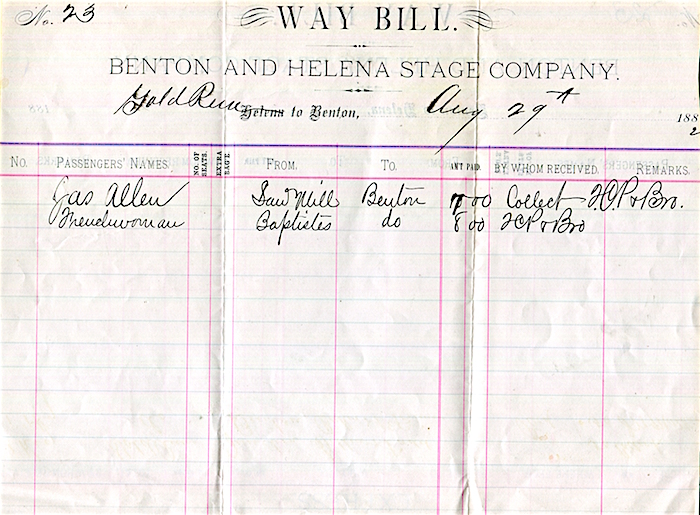 No. 23 WAY BILL.
BENTON AND HELENA STAGE COMPANY.
Gold Run Helena to Benton, Aug 29th 1882
No. PASSENGERS' NAMES. NO. OF SEATS. EXTRA BAG'E FROM. TO. AM'T PAID. BY WHOM RECEIVED. REMARKS.
Jas Allen Saw Mill Benton 7 00 Collect
Baptistes do 8 00